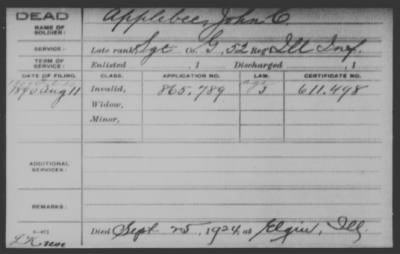 DEAD
NAME OF SOLDIER: Applebee, John C.
SERVICE: Late rank Sgt Co. G, 52 Reg Ill Inf.
TERM OF SERVICE: Enlisted , 1 Discharged , 1
DATE OF FILING. CLASS. APPLICATION NO. LAW. CERTIFICATE NO.
1890 Aug 11 Invalid, 865.789 611.498
Widow,
Minor,
ADDITIONAL SERVICES:
REMARKS:
Died Sept 25, 1924, at Elgin, Ill.